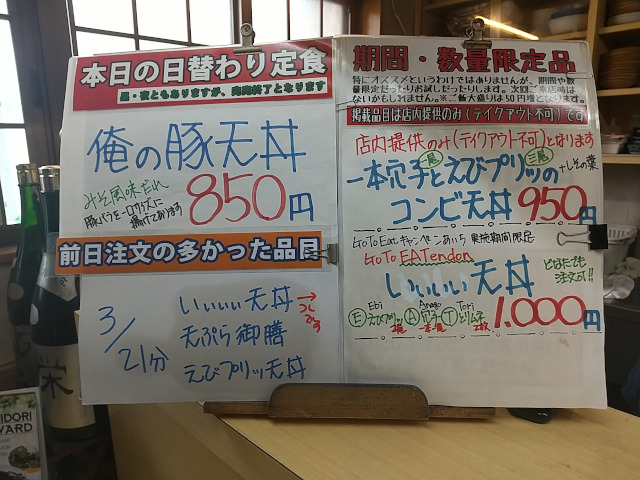 本日の日替わり定食
昼・夜ともありますが、完売終了となります
俺の豚天丼
みそ風味だれ
豚バラを一口サイズに
揚げております
850円
前日注文の多かった品目
3/21分
いいいい天丼
→つくです
天ぷら御膳
えびプリッ天丼
期間・数量限定品
特にオススメというわけではありませんが、期間や数
量限定だったりお試しだったりします。次回ご来店時は
ないかもしれません。※ご飯大盛りは50円増となります。
掲載品目は店内提供のみ(テイクアウト不可)です
店内提供のみ(テイクアウト不可)となります
一本穴子とえびプリッの
一尾
二尾
+しその葉
コンビ天丼 950円
Go To Eat キャンペーンあいち 実施期間限定
Go To EATendon
いいいい天丼
どなたでも
注文可!!
Ebi
Anago
Tori
E えびプリッ
2尾
A 穴子
一本
T とりムネ
2枚
1,000円
栄
IDORI
YARD